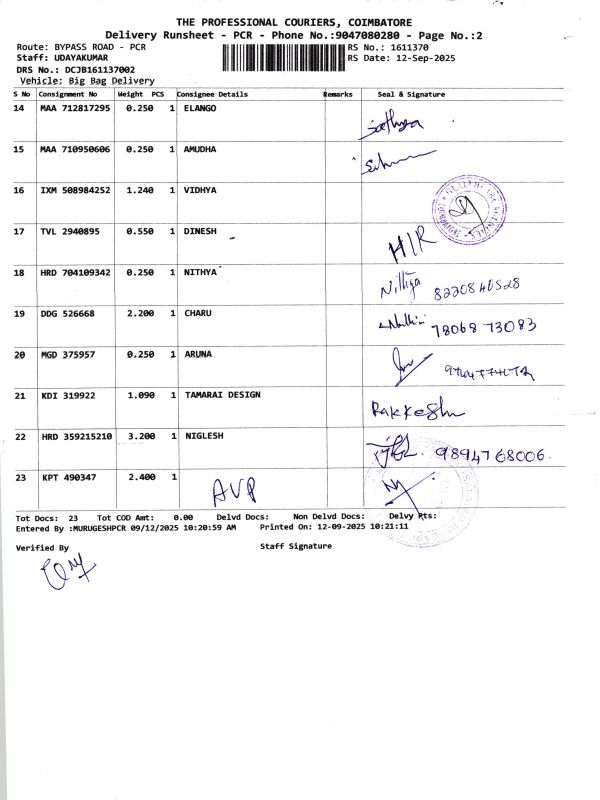 THE PROFESSIONAL COURIERS, COIMBATORE
Delivery Runsheet - PCR - Phone No.:9047080280 - Page No.:2
Route: BYPASS ROAD - PCR RS No.: 1611370
Staff: UDAYAKUMAR RS Date: 12-Sep-2025
DRS No.: DCJB161137002
Vehicle: Big Bag Delivery
S No Consignment No Weight PCS Consignee Details Remarks Seal & Signature
14 MAA 712817295 0.250 1 ELANGO
15 MAA 710950606 0.250 1 AMUDHA
16 IXM 508984252 1.240 1 VIDHYA
17 TVL 2940895 0.550 1 DINESH H/R
18 HRD 704109342 0.250 1 NITHYA Nithya 8220840528
19 DDG 526668 2.200 1 CHARU 78068 73083
20 MGD 375957 0.250 1 ARUNA
21 KDI 319922 1.090 1 TAMARAI DESIGN Rakkeshu
22 HRD 359215210 3.200 1 NIGLESH 9894768006.
23 KPT 490347 2.400 1 AVP
Tot Docs: 23 Tot COD Amt: 0.00 Delvd Docs: Non Delvd Docs: Delvy Pts:
Entered By :MURUGESHPCR 09/12/2025 10:20:59 AM Printed On: 12-09-2025 10:21:11
Verified By Staff Signature